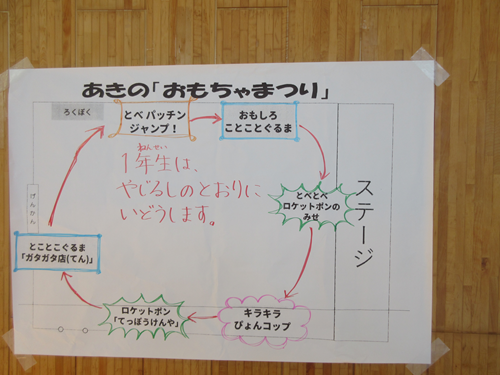 あきの「おもちゃまつり」
ろくぼく
とべ パッチン
ジャンプ！
おもしろ
ことことぐるま
ねんせい
1年生は、
やじるしのとおりに
いどうします。
とべとべ
ロケットポンの
みせ
ステージ
げんかん
とことこぐるま
「ガタガタ店(てん)」
キラキラ
ぴょんコップ
ロケットポン
「てっぽうけんや」